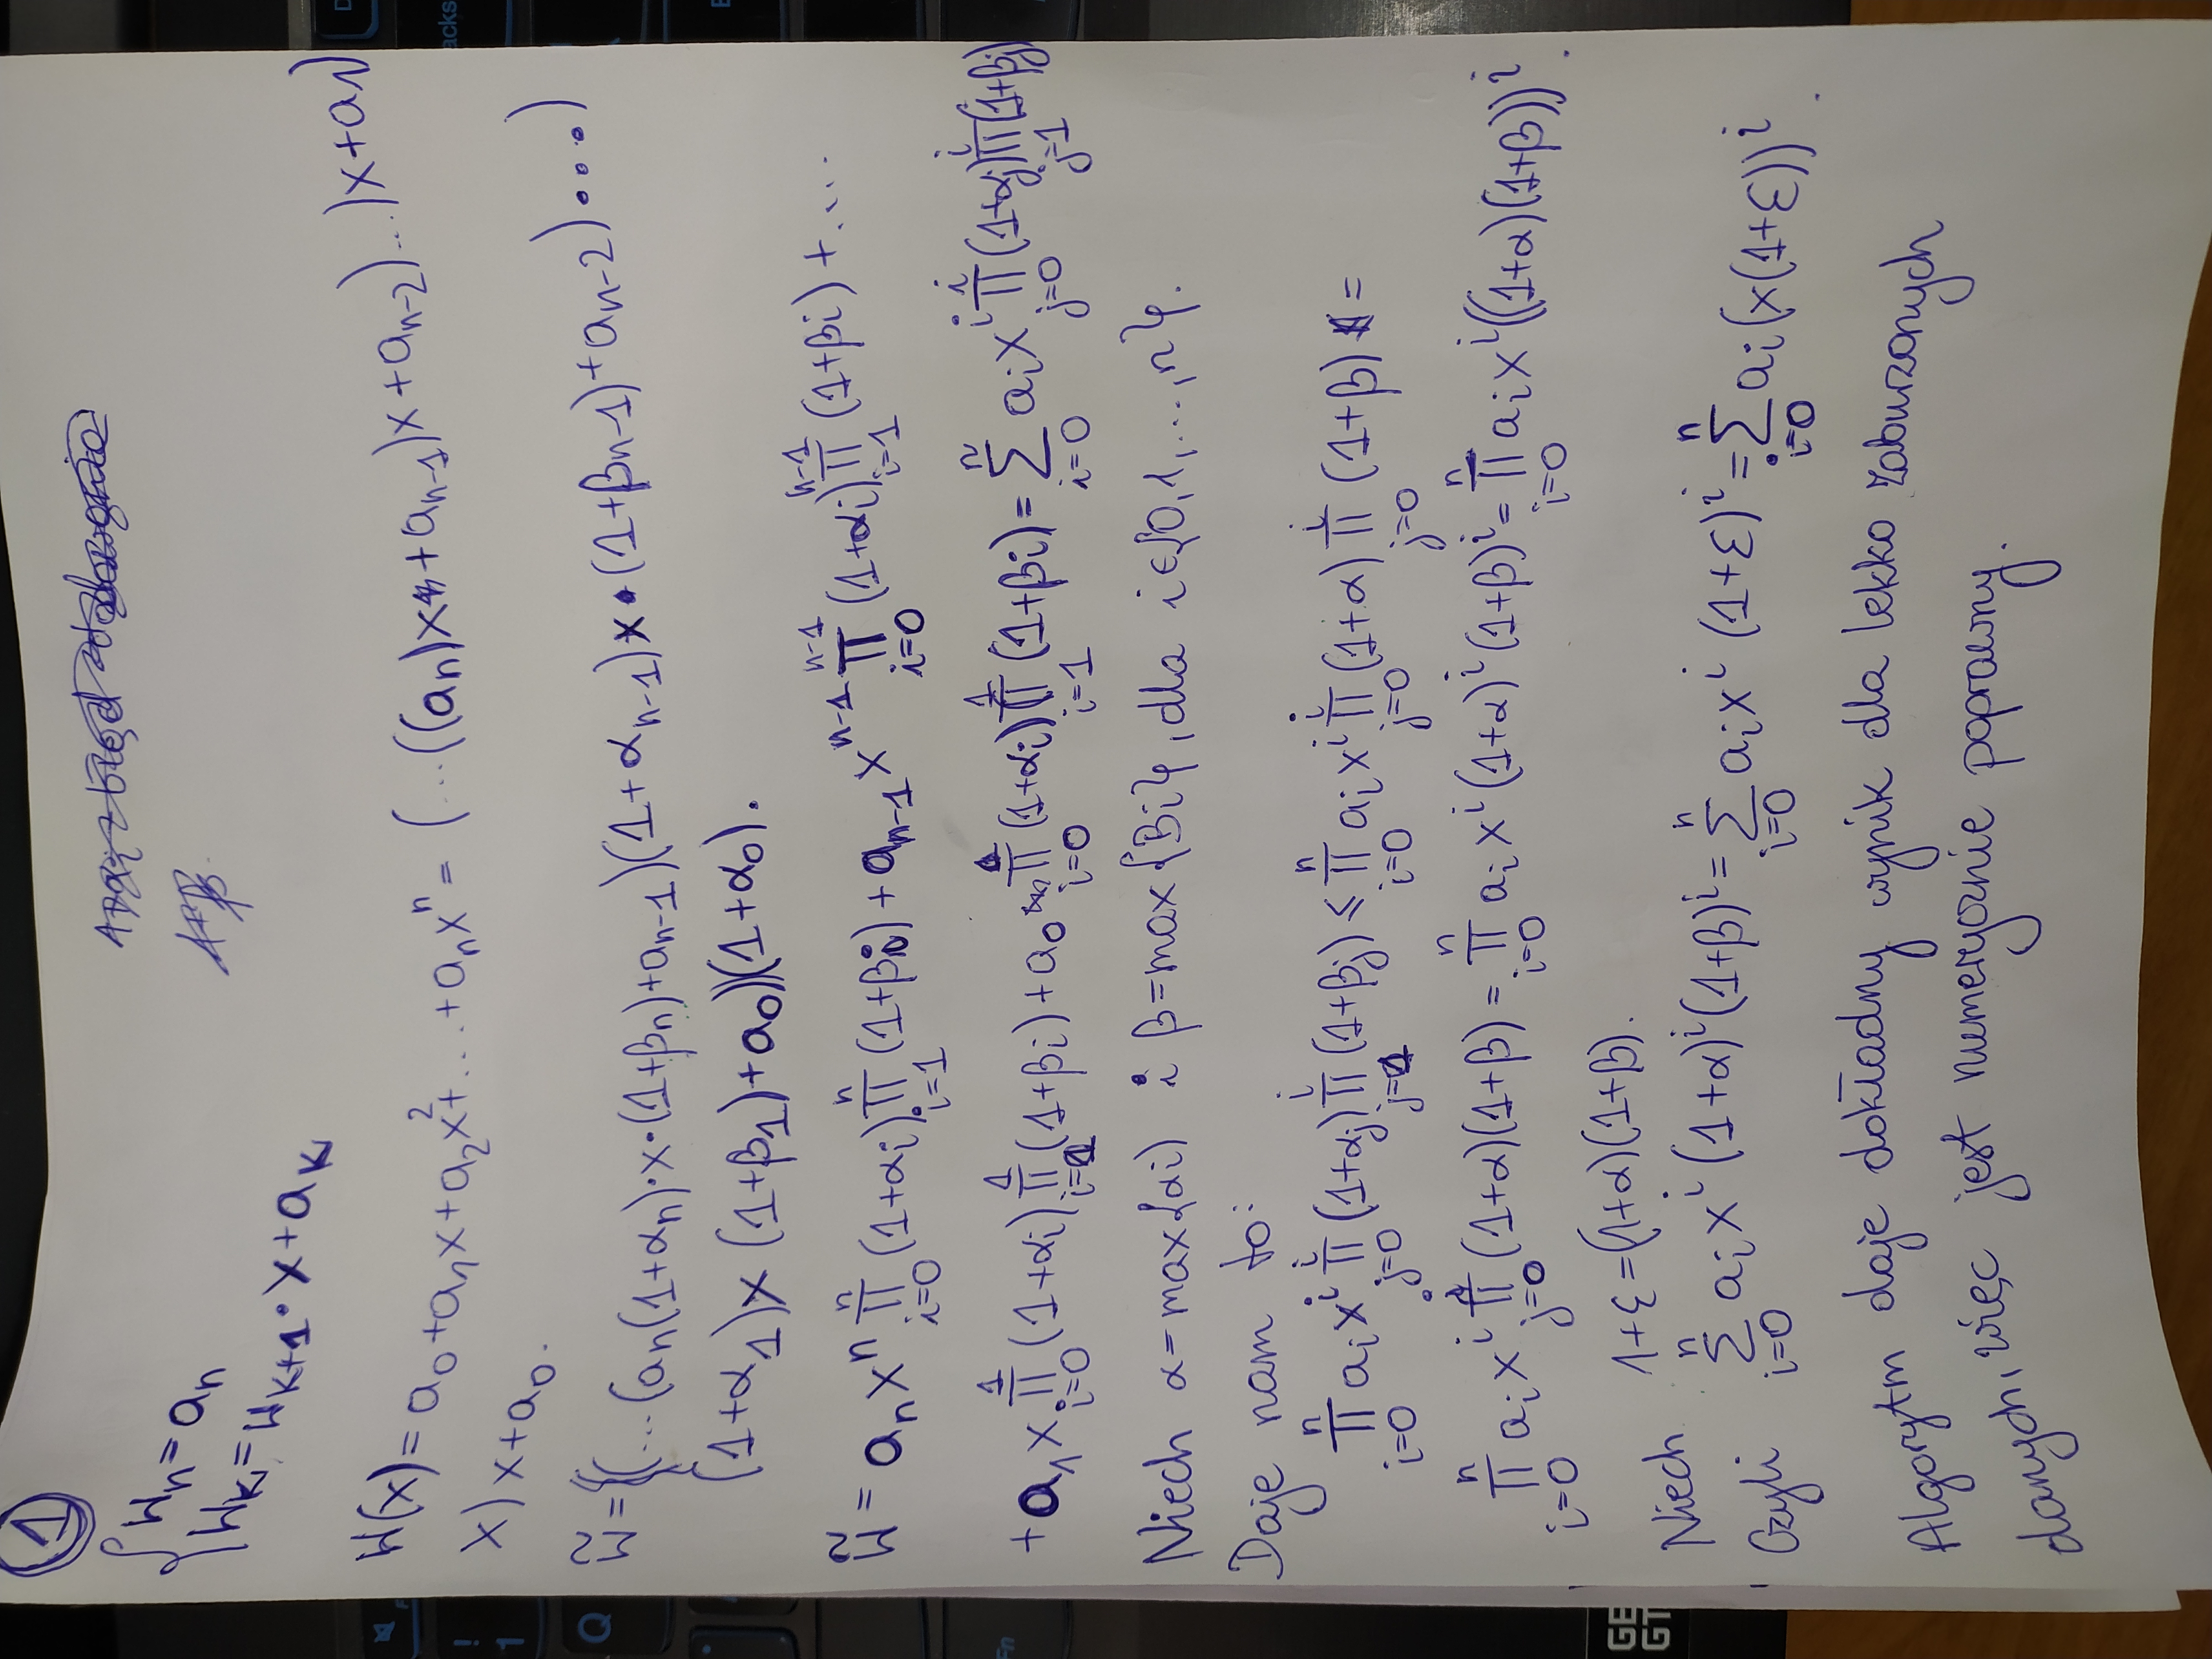 1
{ Wₙ = aₙ
Wₖ = Wₖ₊₁ · x + aₖ
W(x) = a₀ + a₁x + a₂x² + ... + aₙxⁿ = (...((aₙ)x + aₙ₋₁)x + aₙ₋₂)...)x + a₁)
x) x + a₀.
W̃ = {(...(aₙ(1+αₙ)·x·(1+βₙ) + aₙ₋₁)(1+αₙ₋₁)x·(1+βₙ₋₁) + aₙ₋₂)....)
(1+α₁)x (1+β₁) + a₀))(1+α₀).
W̃ = aₙxⁿ ∏_{i=0}^{n} (1+αᵢ) ∏_{i=1}^{n} (1+βᵢ) + aₙ₋₁xⁿ⁻¹ ∏_{i=0}^{n-1} (1+αᵢ) ∏_{i=1}^{n-1} (1+βᵢ) + ....
+ a₁x ∏_{i=0}^{1} (1+αᵢ) ∏_{i=1}^{1} (1+βᵢ) + a₀ ∏_{i=0} (1+αᵢ) ∏_{i=1}^{1} (1+βᵢ) = ∑_{i=0}^{n} aᵢxⁱ ∏_{j=0}^{i} (1+αⱼ) ∏_{j=1}^{i} (1+βⱼ)
Niech α = max{αi) i β = max{βi}, dla i∈{0,1,...,n}.
Daje nam to:
∏_{i=0}^{n} aᵢxⁱ ∏_{j=0}^{i} (1+αⱼ) ∏_{j=1}^{i} (1+βⱼ) ≤ ∏_{i=0}^{n} aᵢxⁱ ∏_{j=0}^{i} (1+α) ∏_{j=0}^{i} (1+β) =
∏_{i=0}^{n} aᵢxⁱ ∏_{j=0}^{i} (1+α)(1+β) = ∏_{i=0}^{n} aᵢxⁱ(1+α)ⁱ(1+β)ⁱ = ∏_{i=0}^{n} aᵢxⁱ((1+α)(1+β))ⁱ.
Niech 1+ε = (1+α)(1+β).
Czyli ∑_{i=0}^{n} aᵢxⁱ (1+α)ⁱ(1+β)ⁱ = ∑_{i=0}^{n} aᵢxⁱ (1+ε)ⁱ = ∑_{i=0}^{n} aᵢ(x(1+ε))ⁱ.
Algorytm daje dokładny wynik dla lekko zaburzonych
danych, więc jest numerycznie poprawny.